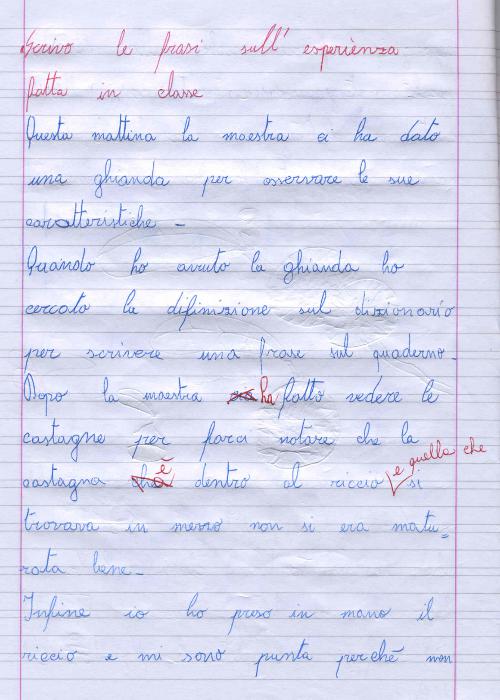 Scrivo le frasi sull' esperienza
fatta in classe
Questa mattina la maestra ci ha dato
una ghianda per osservare le sue
caratteristiche -
Quando ho avuto la ghianda ho
cercato la difinizione sul dizionario
per scrivere una frase sul quaderno -
Dopo la maestra ha fatto vedere le
castagne per farci notare che la
castagna è dentro al riccio e quella che si
trovava in mezzo non si era matu=
rata bene -
Infine io ho preso in mano il
riccio e mi sono punta perché non